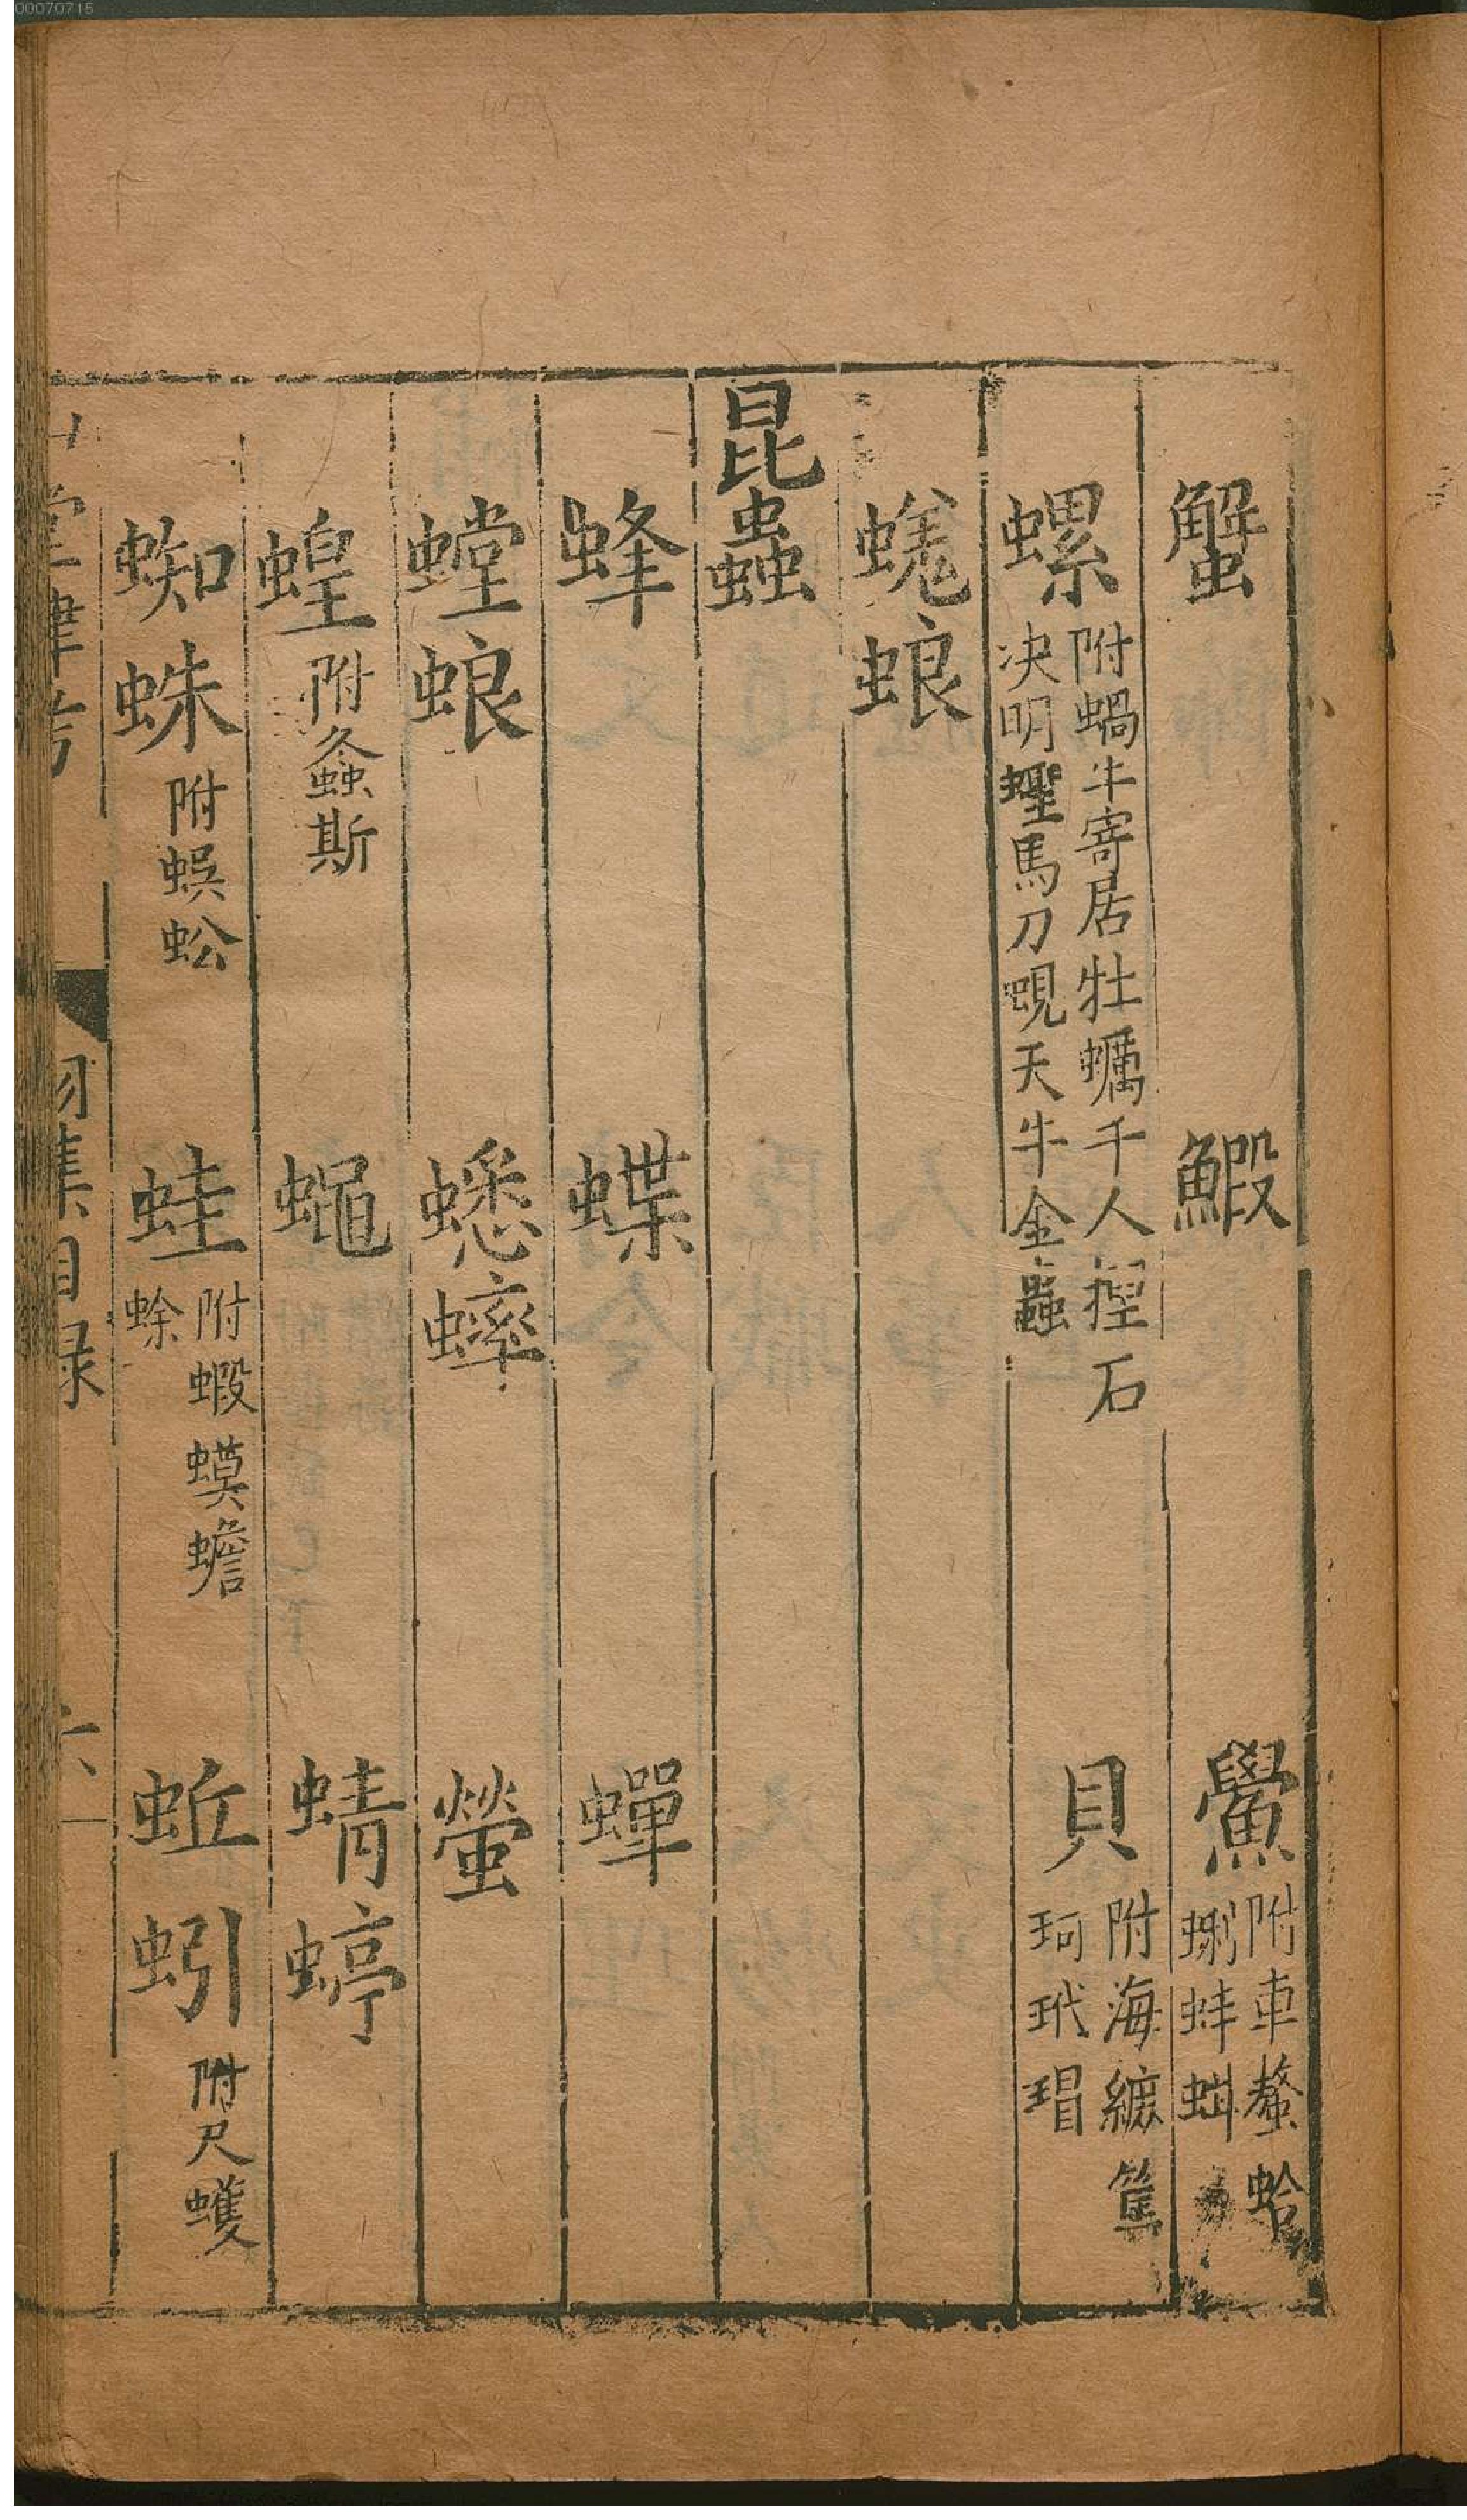 00070715
蟹　鰕　鱟附車螯蛤蜊蚌蚶
螺附蝸牛寄居牡蠣千人揑石決明蟶馬刀蜆天牛金蟲　貝附海䗯篤珂玳瑁
蜣蜋
昆蟲
蜂　蝶　蟬
螳蜋　蟋蟀　螢
蝗附螽斯　蠅　蜻蝏
蜘蛛附蜈蚣　蛙附蝦蟆蟾蜍　蚯蚓附尺蠖
堂肆考　集目錄　六